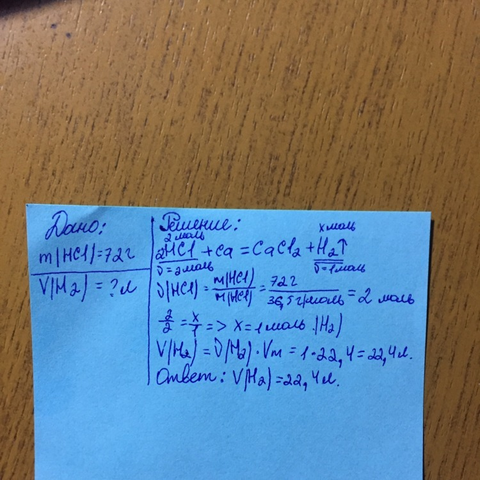 Дано:
m(HCl)=72г
V(H₂) = ? л
Решение:
2моль
x моль
2HCl + Ca = CaCl₂ + H₂↑
ν=2моль
ν=1моль
ν(HCl) = m(HCl)/M(HCl) = 72г/36,5г/моль = 2 моль
2/2 = x/1 => x = 1 моль (H₂)
V(H₂) = ν(H₂) · Vm = 1 · 22,4 = 22,4 л.
Ответ: V(H₂) = 22,4 л.